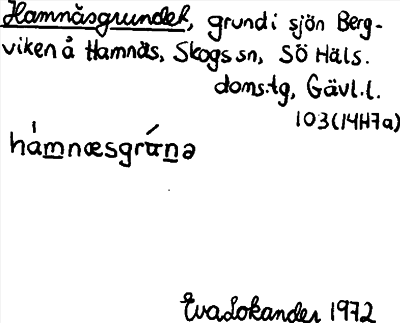 Hamnäsgrundet, grund i sjön Berg-
viken å Hamnäs, Skogs sn, Sö Häls.
doms.tg, Gävl.l.
103(14H7a)
hámnæsgrúnə
Eva Lokander 1972